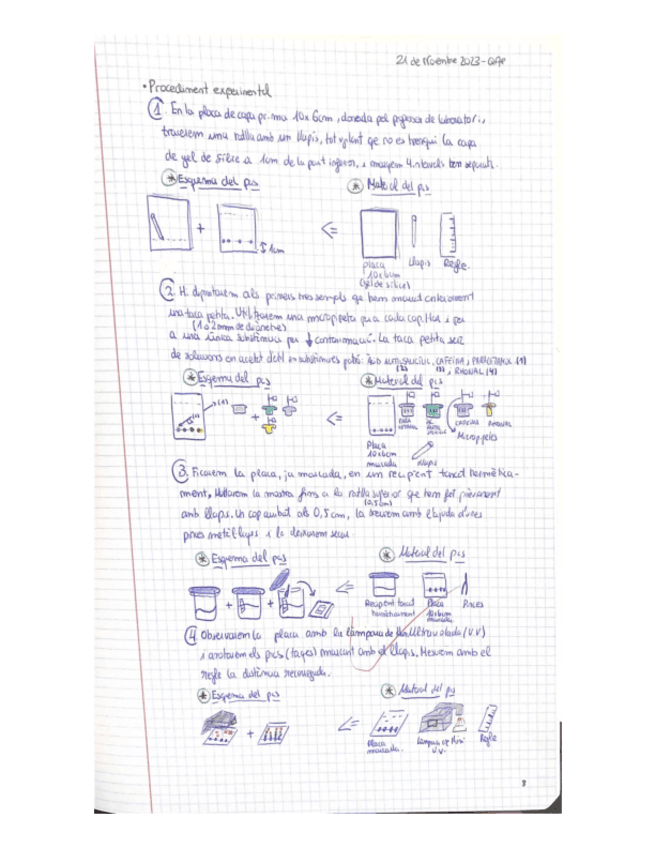 21 de Novembre 2023-QAP
• Procediment experimental
1. En la placa de capa prima 10x6cm, donada pel professor de laboratori,
traurem una ratlla amb un llapis, tot vigilant que no es trenqui la capa
de gel de sílice a 1cm de la part inferior, i marquem 4 intervals ben separats.
* Esquema del pas
* Material del pas
+
1cm
<=
placa
10x6cm
(gel de sílice)
Llapis
Regle.
2. Hi dipositarem als primers tres senyals que hem marcat anteriorment
una taca petita. Utilitzarem una micropipeta per a cada capil·lar i per
(1 o 2mm de diàmetre)
a una única substància per ↓ contaminació. La taca petita serà
de solucions en acetat d'etil en substàncies pures: ÀCID ACETILSALICÍLIC, CAFEÏNA, PARACETAMOL (1)
(2) (3), RHONAL (4)
* Esquema del pas
* Material del pas
+
<=
Placa
10x6cm
marcada
Llapis
PARA
CETAMOL
AC.
ACETIL
SALICÍLIC
CAFEÏNA
RHONAL
Micropipetes
3. Ficarem la placa, ja marcada, en un recipient tancat hermèticament,
ment, lliurarem la mostra fins a la ratlla superior que hem fet prèviament
(0,5cm)
amb llapis. Un cop arribat als 0,5cm, la traurem amb l'ajuda d'unes
pinces metàl·liques i la deixarem secar.
* Esquema del pas
* Material del pas
+
+
<=
Recipient tancat
hermèticament
Placa
10x6cm
marcada
Pinces
4. Observarem la placa amb la làmpara de llum Ultraviolada (U.V)
i anotarem els pics (taques) marcant amb el llapis. Mesurem amb el
regle la distància recorreguda.
* Esquema del pas
* Material del pas
+
<=
Placa
marcada.
Làmpara de llum
U.V.
Regle
8